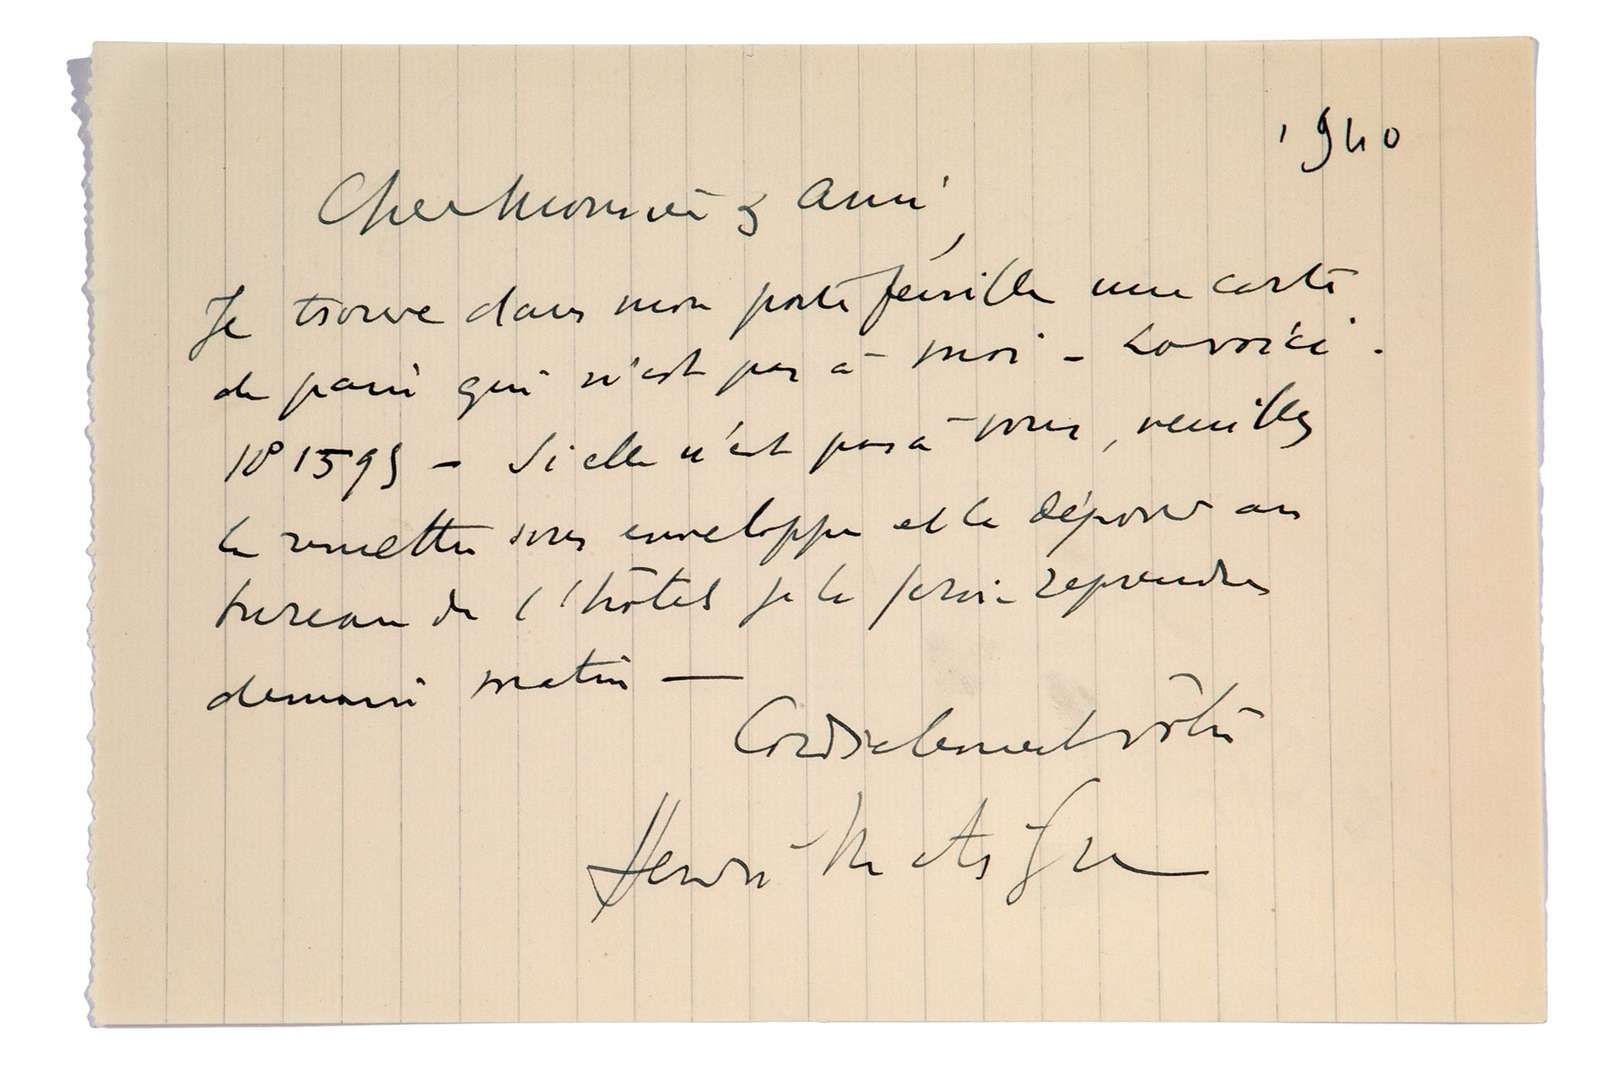 1940
Cher Monsieur & ami,
Je trouve dans mon portefeuille une carte
de pain qui n'est pas à moi - La voici.
N° 1595 - Si elle n'est pas à vous, veuillez
la remettre sous enveloppe et la déposer au
bureau de l'hôtel je la ferai reprendre
demain matin —
Cordialement vôtre
Henri Matisse